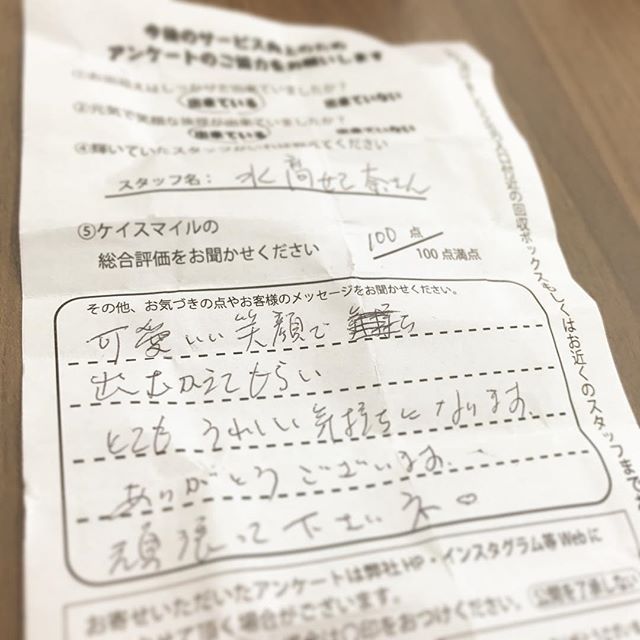 今後のサービス向上のため
アンケートのご協力をお願いします
出来ている 出来ていない
②元気で笑顔な挨拶が出来ていましたか？
出来ている 出来ていない
④輝いていたスタッフがいれば教えてください
スタッフ名：
⑤ケイスマイルの
総合評価をお聞かせください
100 点
100 点満点
その他、お気づきの点やお客様のメッセージをお聞かせください。
可愛いい笑顔で
出むかえてもらい
とても うれしい気持ちになります。
ありがとうございます。
頑張って下さいネ♡
お寄せいただいたアンケートは弊社HP・インスタグラム等Webに
せて頂く場合がございます。
印をおつけください。 公開を了承しない
付近の回収ボックスもしくはお近くのスタッフまで